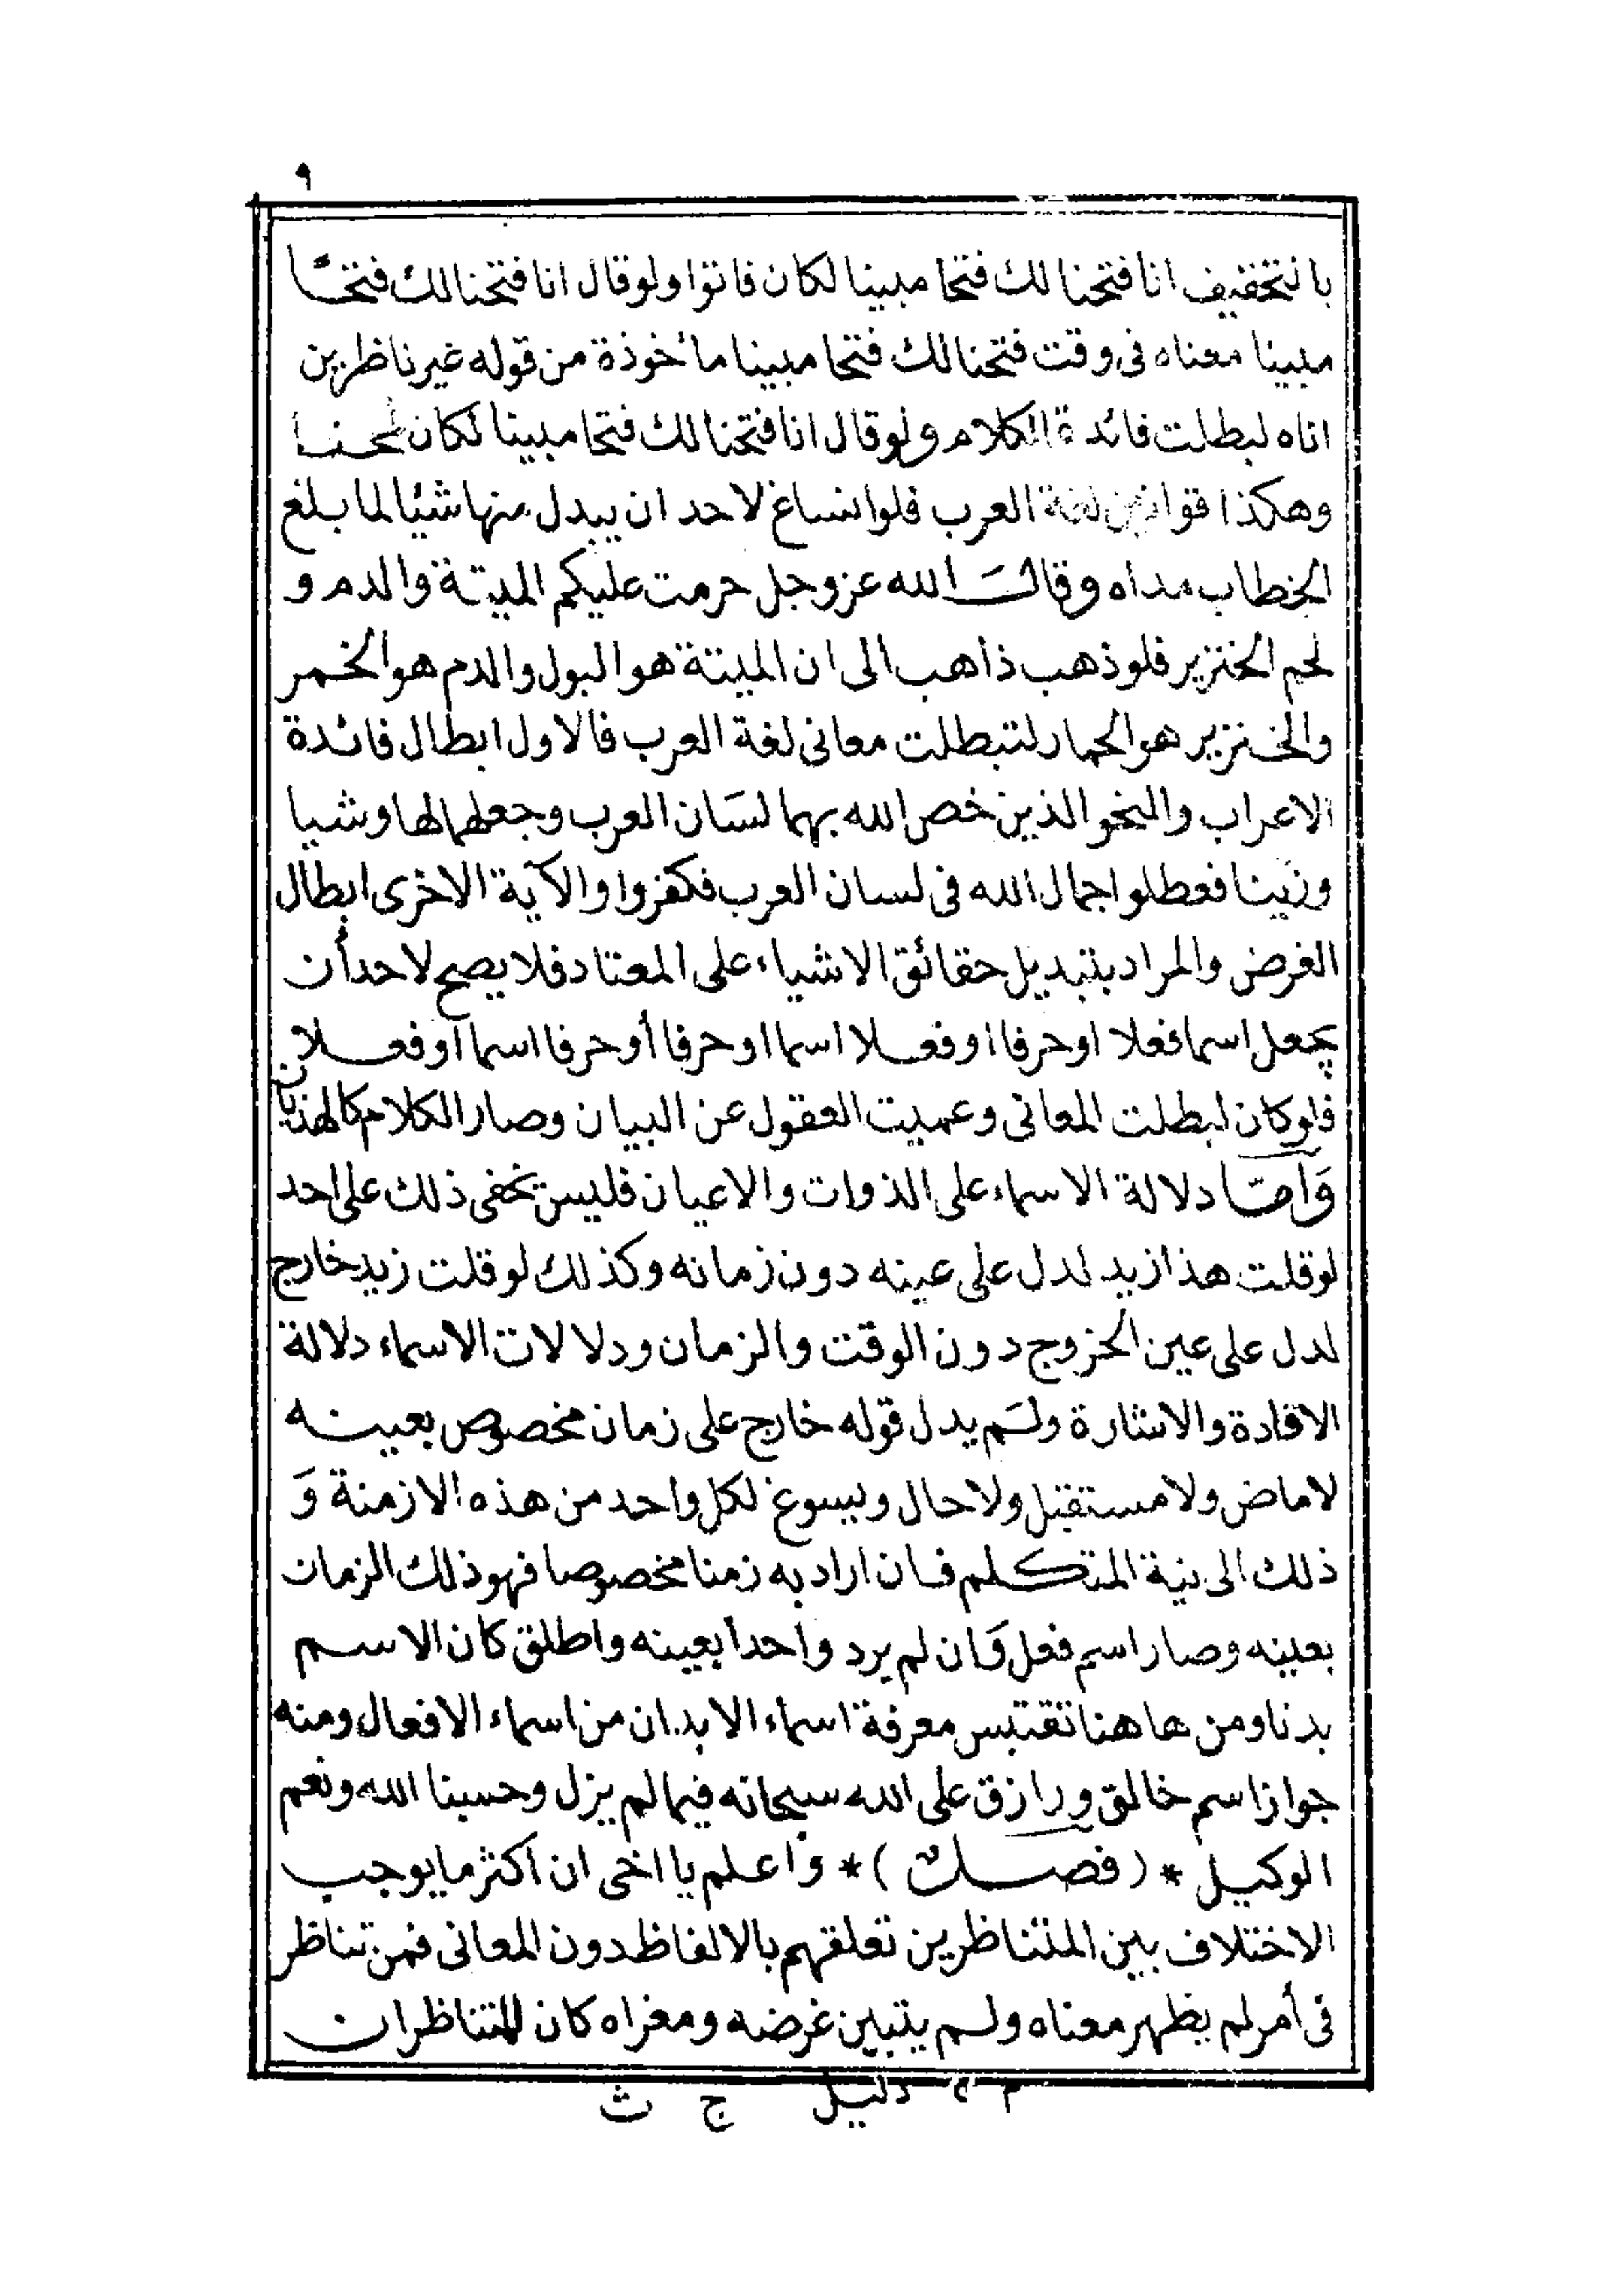 ٩
بالتخفيف انا فتحنا لك فتحا مبينا لكان فاتوا ولو قال انا فتحنا لك فتحا
مبينا معناه فى وقت فتحنا لك فتحا مبينا مأخوذة من قوله غير ناظرين
اناه لبطلت فائدة الكلام ولو قال انا فتحنا لك فتحا مبينا لكان لحنا
وهكذا قوانين لغة العرب فلو انساغ لاحد ان يبدل منها شيئا لما بلغ
الخطاب مداه وقال الله عز وجل حرمت عليكم الميتة والدم و
لحم الخنزير فلو ذهب ذاهب الى ان الميتة هو البول والدم هو الخمر
والخنزير هو الحمار لتبطلت معانى لغة العرب فالاول ابطال فائدة
الاعراب والنحو الذين خص الله بهما لسان العرب وجعلهما لها وشيا
وزينا فعطلوا جمال الله فى لسان العرب فكفروا والآية الاخرى ابطال
الغرض والمراد بتبديل حقائق الاشياء على المعتاد فلا يصح لاحد أن
يجعل اسما فعلا او حرفا او فعلا اسما او حرفا أو حرفا اسما او فعلا
فلو كان لبطلت المعانى وعميت العقول عن البيان وصار الكلام كالهذيان
وَامّا دلالة الاسماء على الذوات والاعيان فليس يخفى ذلك على احد
لو قلت هذا زيد لدل على عينه دون زمانه وكذلك لو قلت زيد خارج
لدل على عين الخروج دون الوقت والزمان ودلالات الاسماء دلالة
الافادة والاشارة ولم يدل قوله خارج على زمان مخصوص بعينه
لا ماض ولا مستقبل ولا حال ويسوغ لكل واحد من هذه الازمنة وَ
ذلك الى نية المتكلم فان اراد به زمنا مخصوصا فهو ذلك الزمان
بعينه وصار اسم فعل وَان لم يرد واحدا بعينه واطلق كان الاسم
بدنا ومن هاهنا تقتبس معرفة اسماء الابدان من اسماء الافعال ومنه
جواز اسم خالق ورازق على الله سبحانه فيما لم يزل وحسبنا الله ونعم
الوكيل * ( فصل ) * واعلم يا اخى ان أكثر ما يوجب
الاختلاف بين المتناظرين تعلقهم بالالفاظ دون المعانى فمن تناظر
فى أمر لم يظهر معناه ولم يتبين غرضه ومغزاه كان للمتناظران
م ٢ دليل ج ث